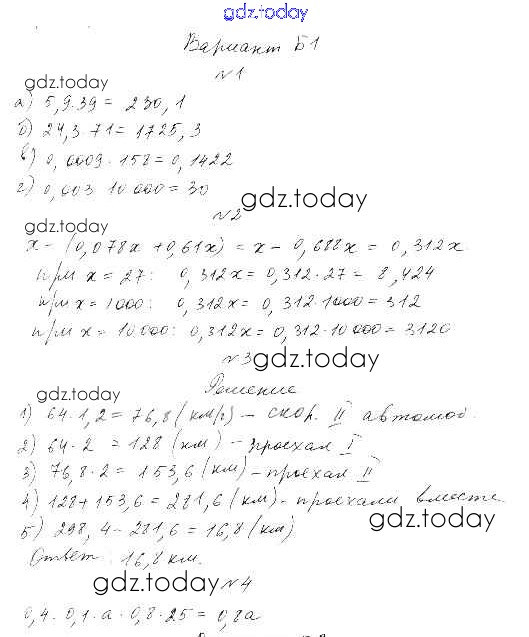 gdz.today
Вариант Б1
№1
gdz.today
а) 5,9·39 = 230,1
б) 24,3·71 = 1725,3
в) 0,0009·158 = 0,1422
г) 0,003·10 000 = 30
gdz.today
№2
gdz.today
x - (0,078x + 0,61x) = x - 0,688x = 0,312x
при x = 27: 0,312x = 0,312·27 = 8,424
при x = 1000: 0,312x = 0,312·1000 = 312
при x = 10000: 0,312x = 0,312·10 000 = 3120
№3
gdz.today
Решение
gdz.today
1) 64·1,2 = 76,8 (км/ч) - скор. II автомоб.
2) 64·2 = 128 (км) - проехал I
3) 76,8·2 = 153,6 (км) - проехал II
4) 128 + 153,6 = 281,6 (км) - проехали вместе
gdz.today
5) 298,4 - 281,6 = 16,8 (км)
Ответ: 16,8 км.
gdz.today
№4
0,4·0,1·a·0,8·25 = 0,8a